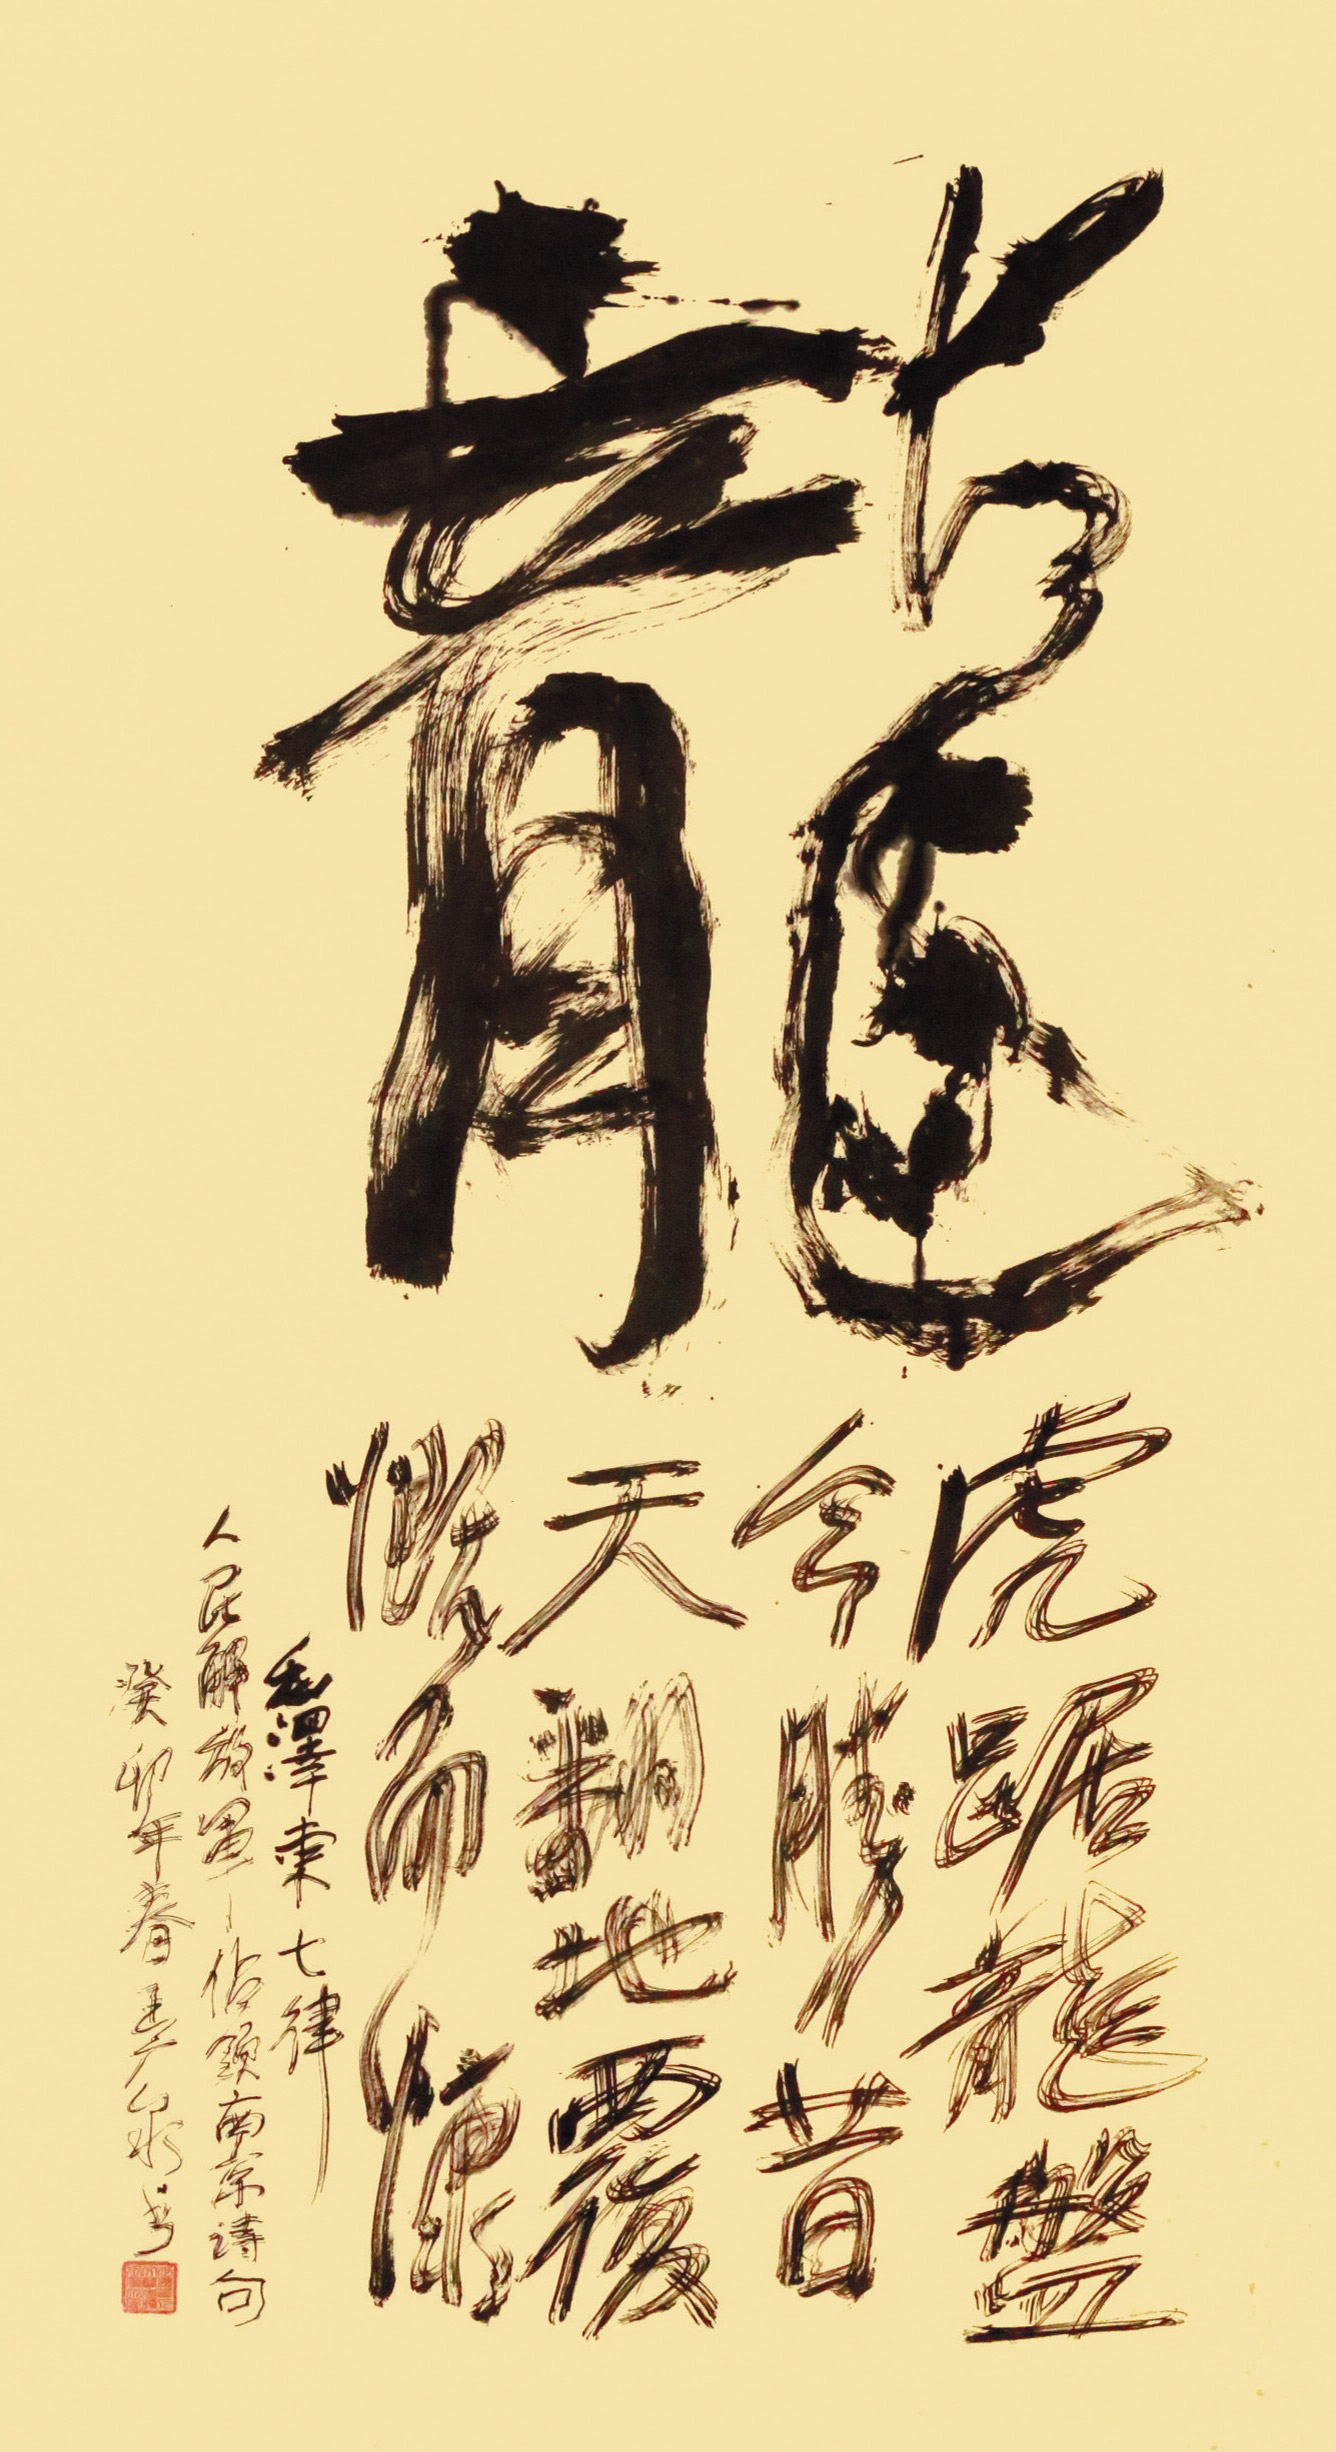 龍
虎踞龍盤
今勝昔
天翻地覆
慨而慷
毛澤東七律
人民解放軍佔領南京詩句
癸卯年春王广泉书